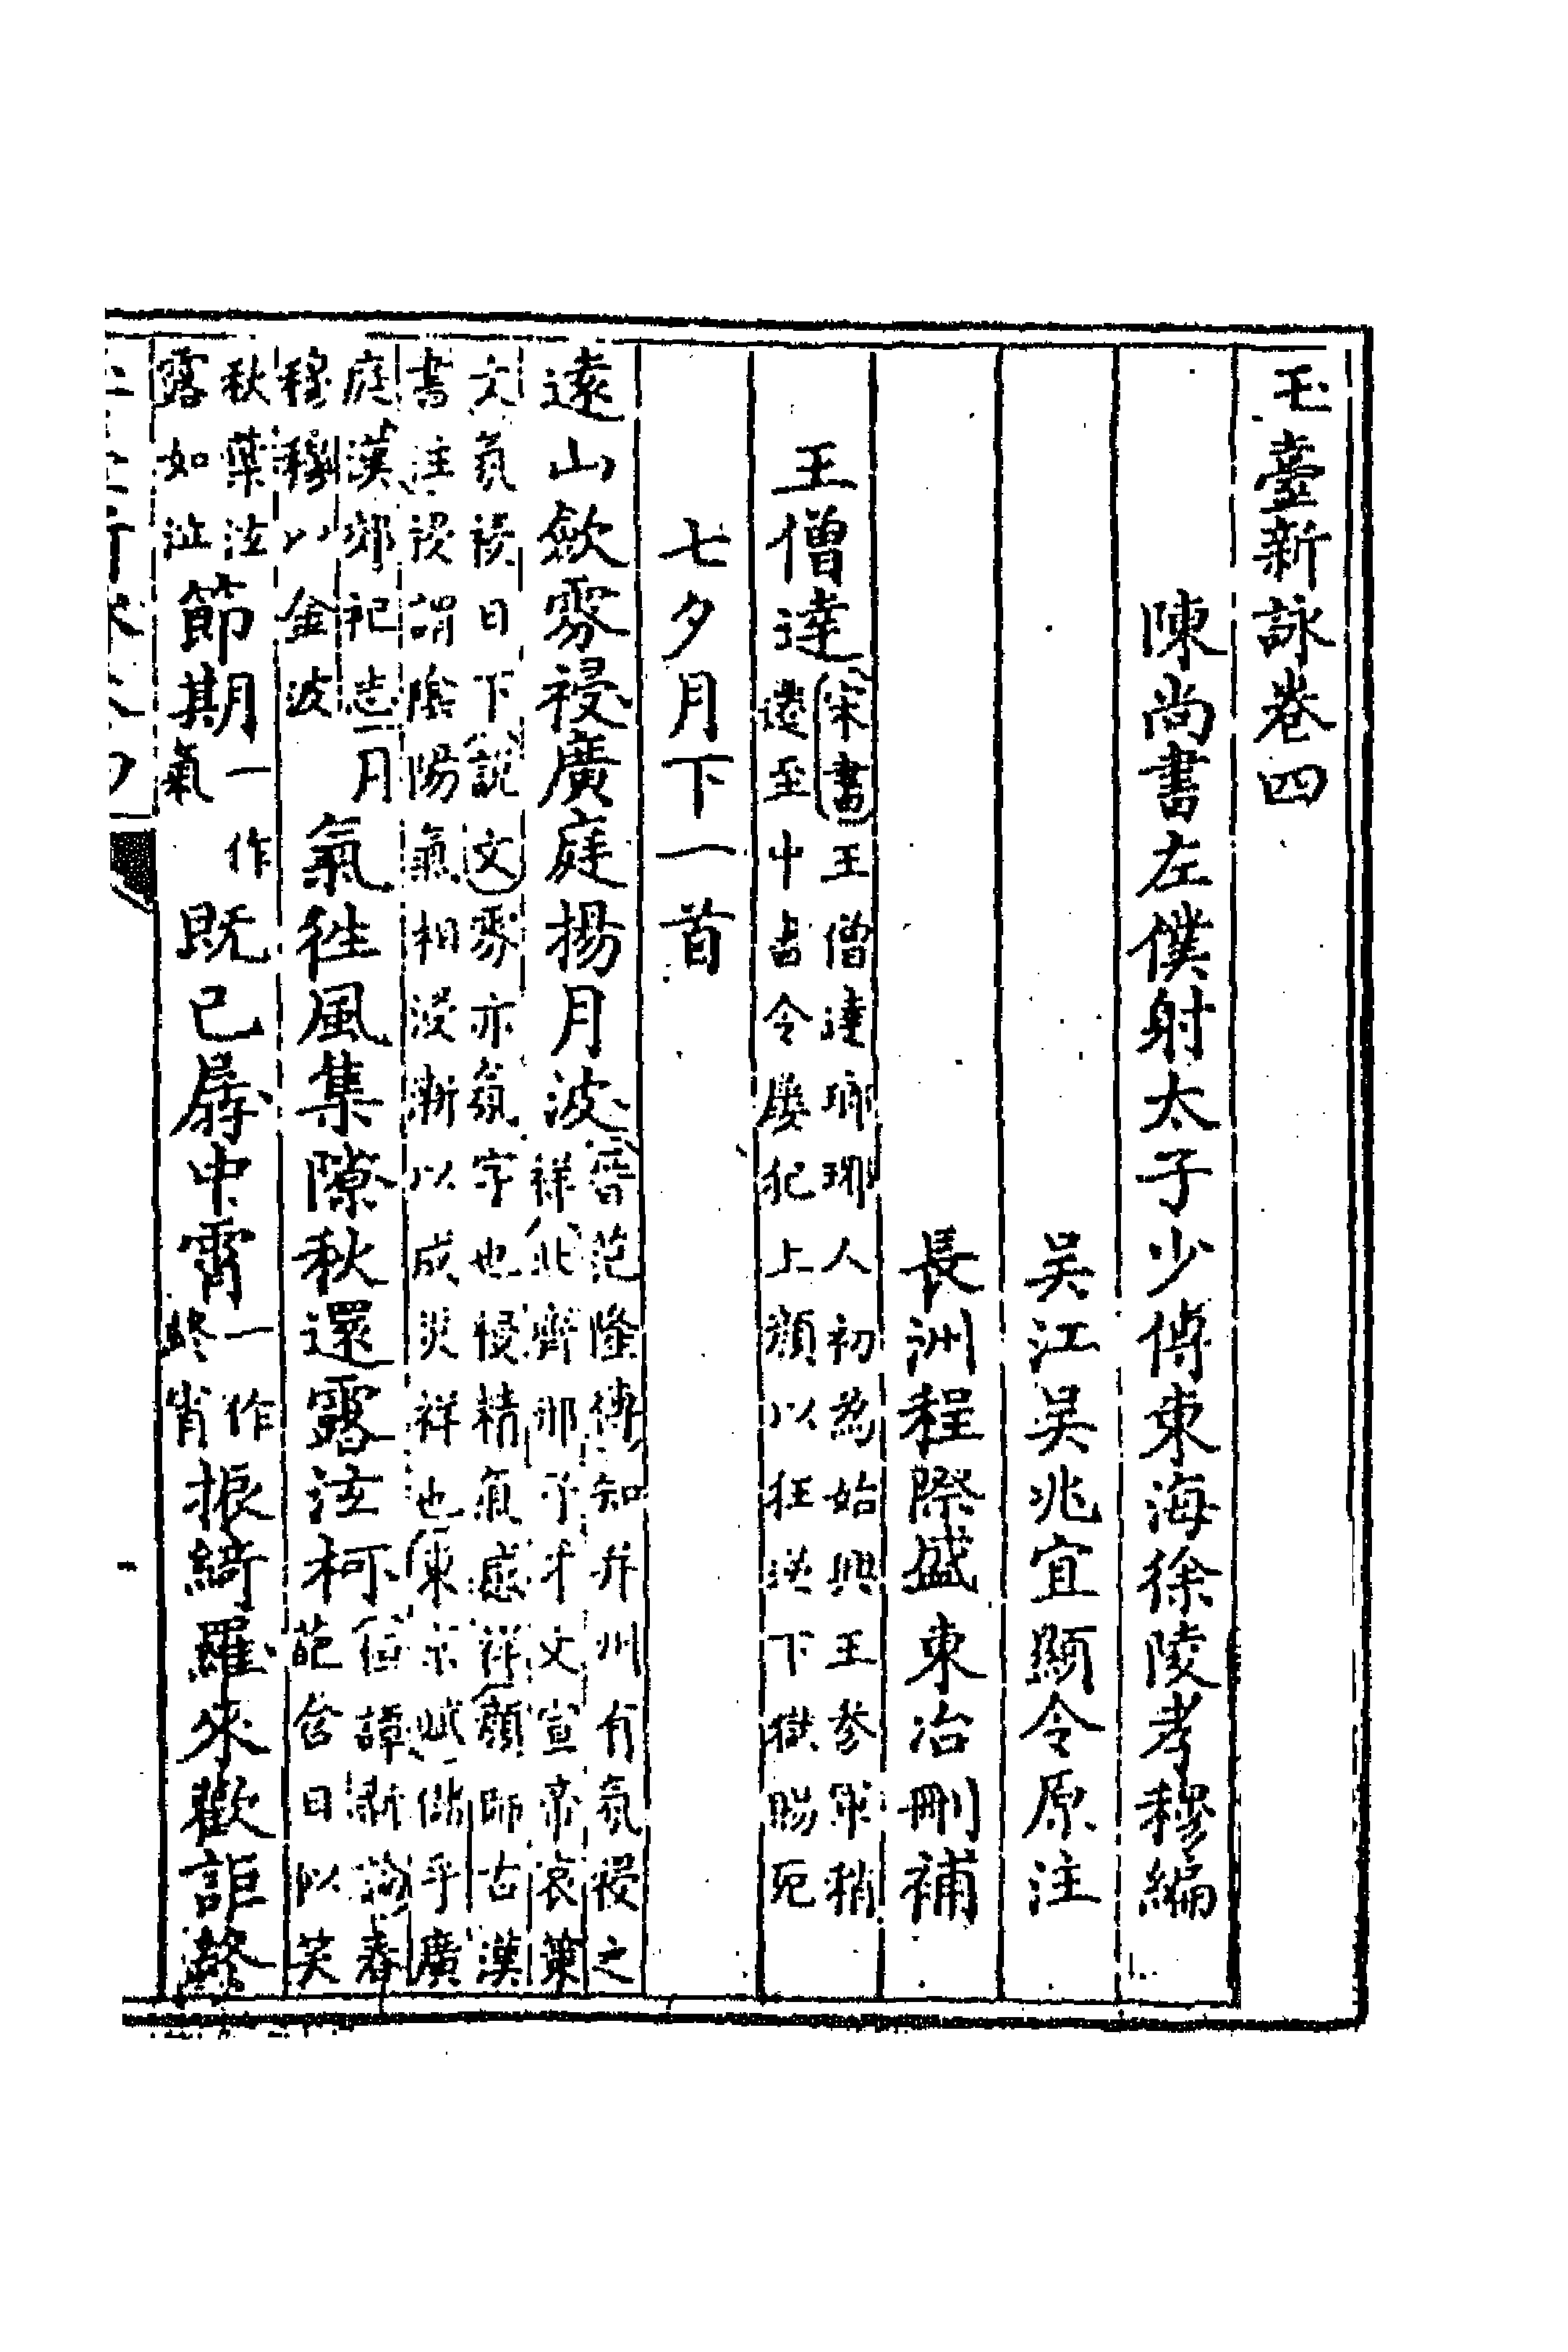 玉臺新詠卷四
陳尚書左僕射太子少傅東海徐陵孝穆編
吳江吳兆宜顯令原注
長洲程際盛東冶刪補
王僧達
宋書王僧達瑯琊人初為始興王參軍稍
遷至中書令屢犯上顏以狂逆下獄賜死
七夕月下一首
遠山斂雰祲廣庭揚月波
晉范隆傳知并州有氛祲之
祥北齊邢子才文宣帝哀策
文氛祲日下說文雰亦氛字也祲精氣感祥顏師古漢
書注祲謂陰陽氣相浸漸以成災祥也東京賦儲乎廣
庭漢郊祀志月
穆穆以金波
氣徃風集隙秋還露泫柯
桓譚新論春
葩含日似笑
秋葉泫
露如泣
節期
一作
氣
既已孱中霄
一作
終宵
振綺羅來歡詎終